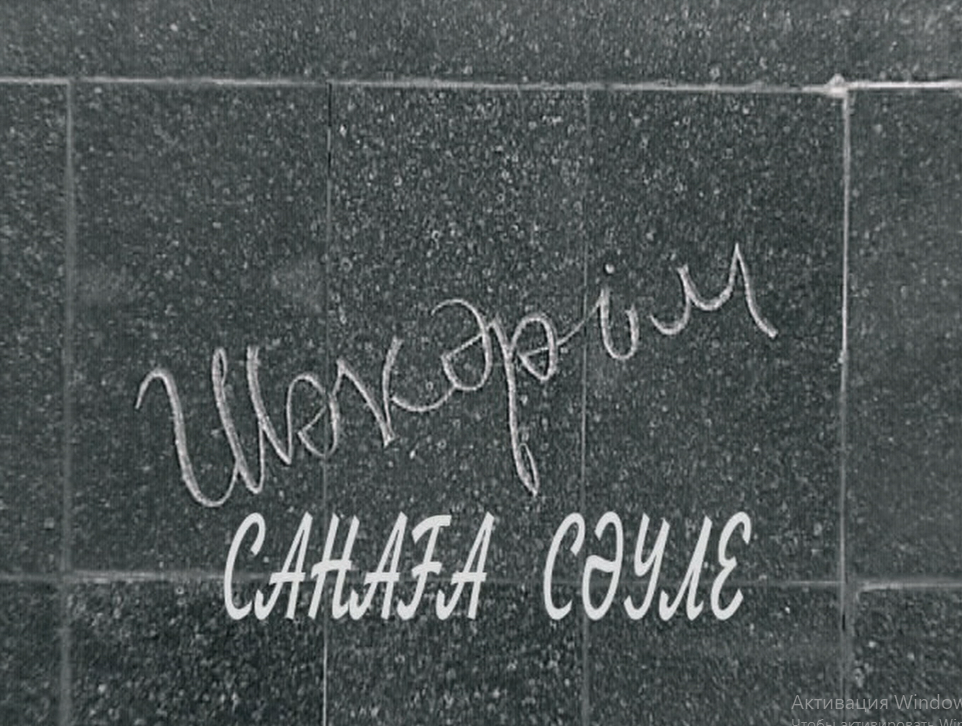 Шәкәрім
САНАҒА СӘУЛЕ
Активация Window
Чтобы активировать Win